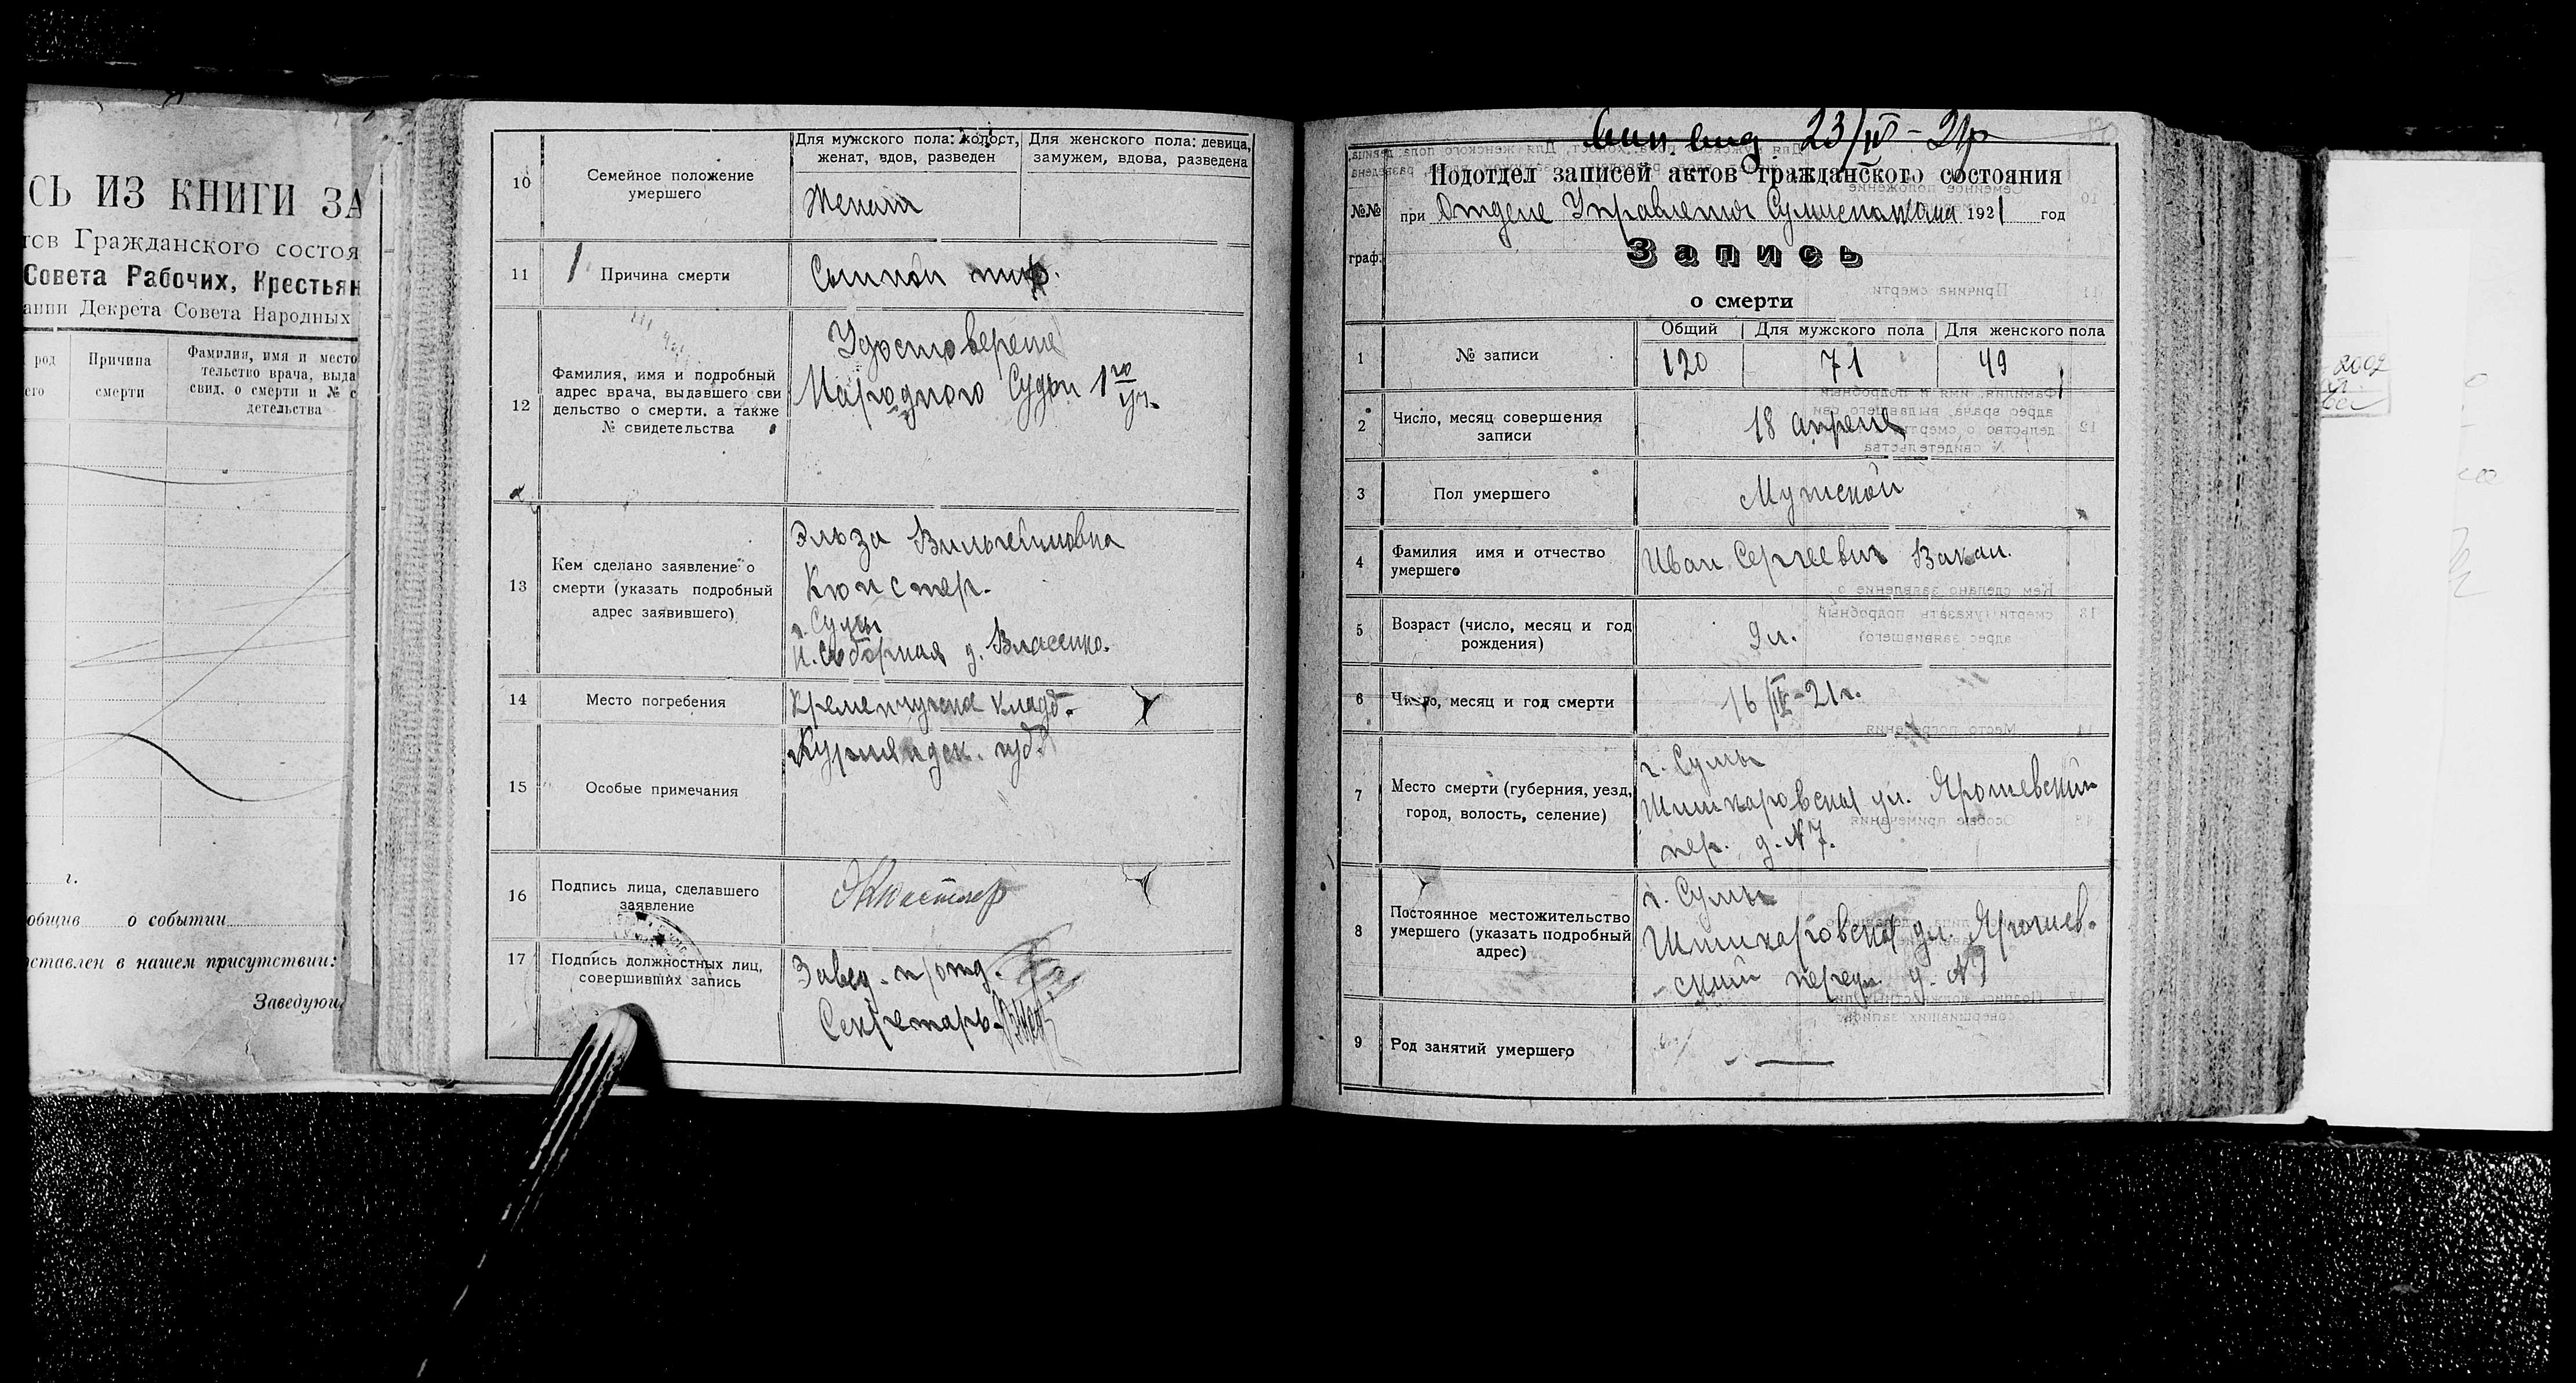 СЬ ИЗ КНИГИ ЗА
тов Гражданского состоя
Совета Рабочих, Крестьян
ании Декрета Совета Народных
род
его
Причина
смерти
Фамилия, имя и место
тельство врача, выда
свид. о смерти и № с
детельства
г.
общив о событии
оставлен в нашем присутствии:
Заведующ
10
Семейное положение
умершего
Для мужского пола: холост,
женат, вдов, разведен
Для женского пола: девица,
замужем, вдова, разведена
Женат
11
Причина смерти
Сыпной тиф.
12
Фамилия, имя и подробный
адрес врача, выдавшего сви
дельство о смерти, а также
№ свидетельства
Удостоверение
Народного Судьи 1го
уч.
13
Кем сделано заявление о
смерти (указать подробный
адрес заявившего)
Эльза Вильгельмовна
Кюпстер.
г. Сумы
Н. Соборная д. Власенко.
14
Место погребения
Кременчугское кладб.
15
Особые примечания
Курляндск. губ.
16
Подпись лица, сделавшего
заявление
17
Подпись должностных лиц,
совершивших запись
Завед. п/отд.
Секретарь
23/IV-21г
Подотдел записей актов гражданского состояния
№№
граф.
при Отделе Управления 1921 год
Запись
о смерти
1
№ записи
Общий
Для мужского пола
Для женского пола
120
71
49
2
Число, месяц совершения
записи
18 апреля
3
Пол умершего
Мужской
4
Фамилия имя и отчество
умершего
Иван Сергеевич Вакан.
5
Возраст (число, месяц и год
рождения)
9 л.
6
Число, месяц и год смерти
16/IV-21г.
7
Место смерти (губерния, уезд,
город, волость, селение)
г. Сумы
Шишкаровская ул. Ярошевский
пер. д. №7.
8
Постоянное местожительство
умершего (указать подробный
адрес)
г. Сумы
Шишкаровская ул. Ярошев-
ский переул. д. №7
9
Род занятий умершего
2002